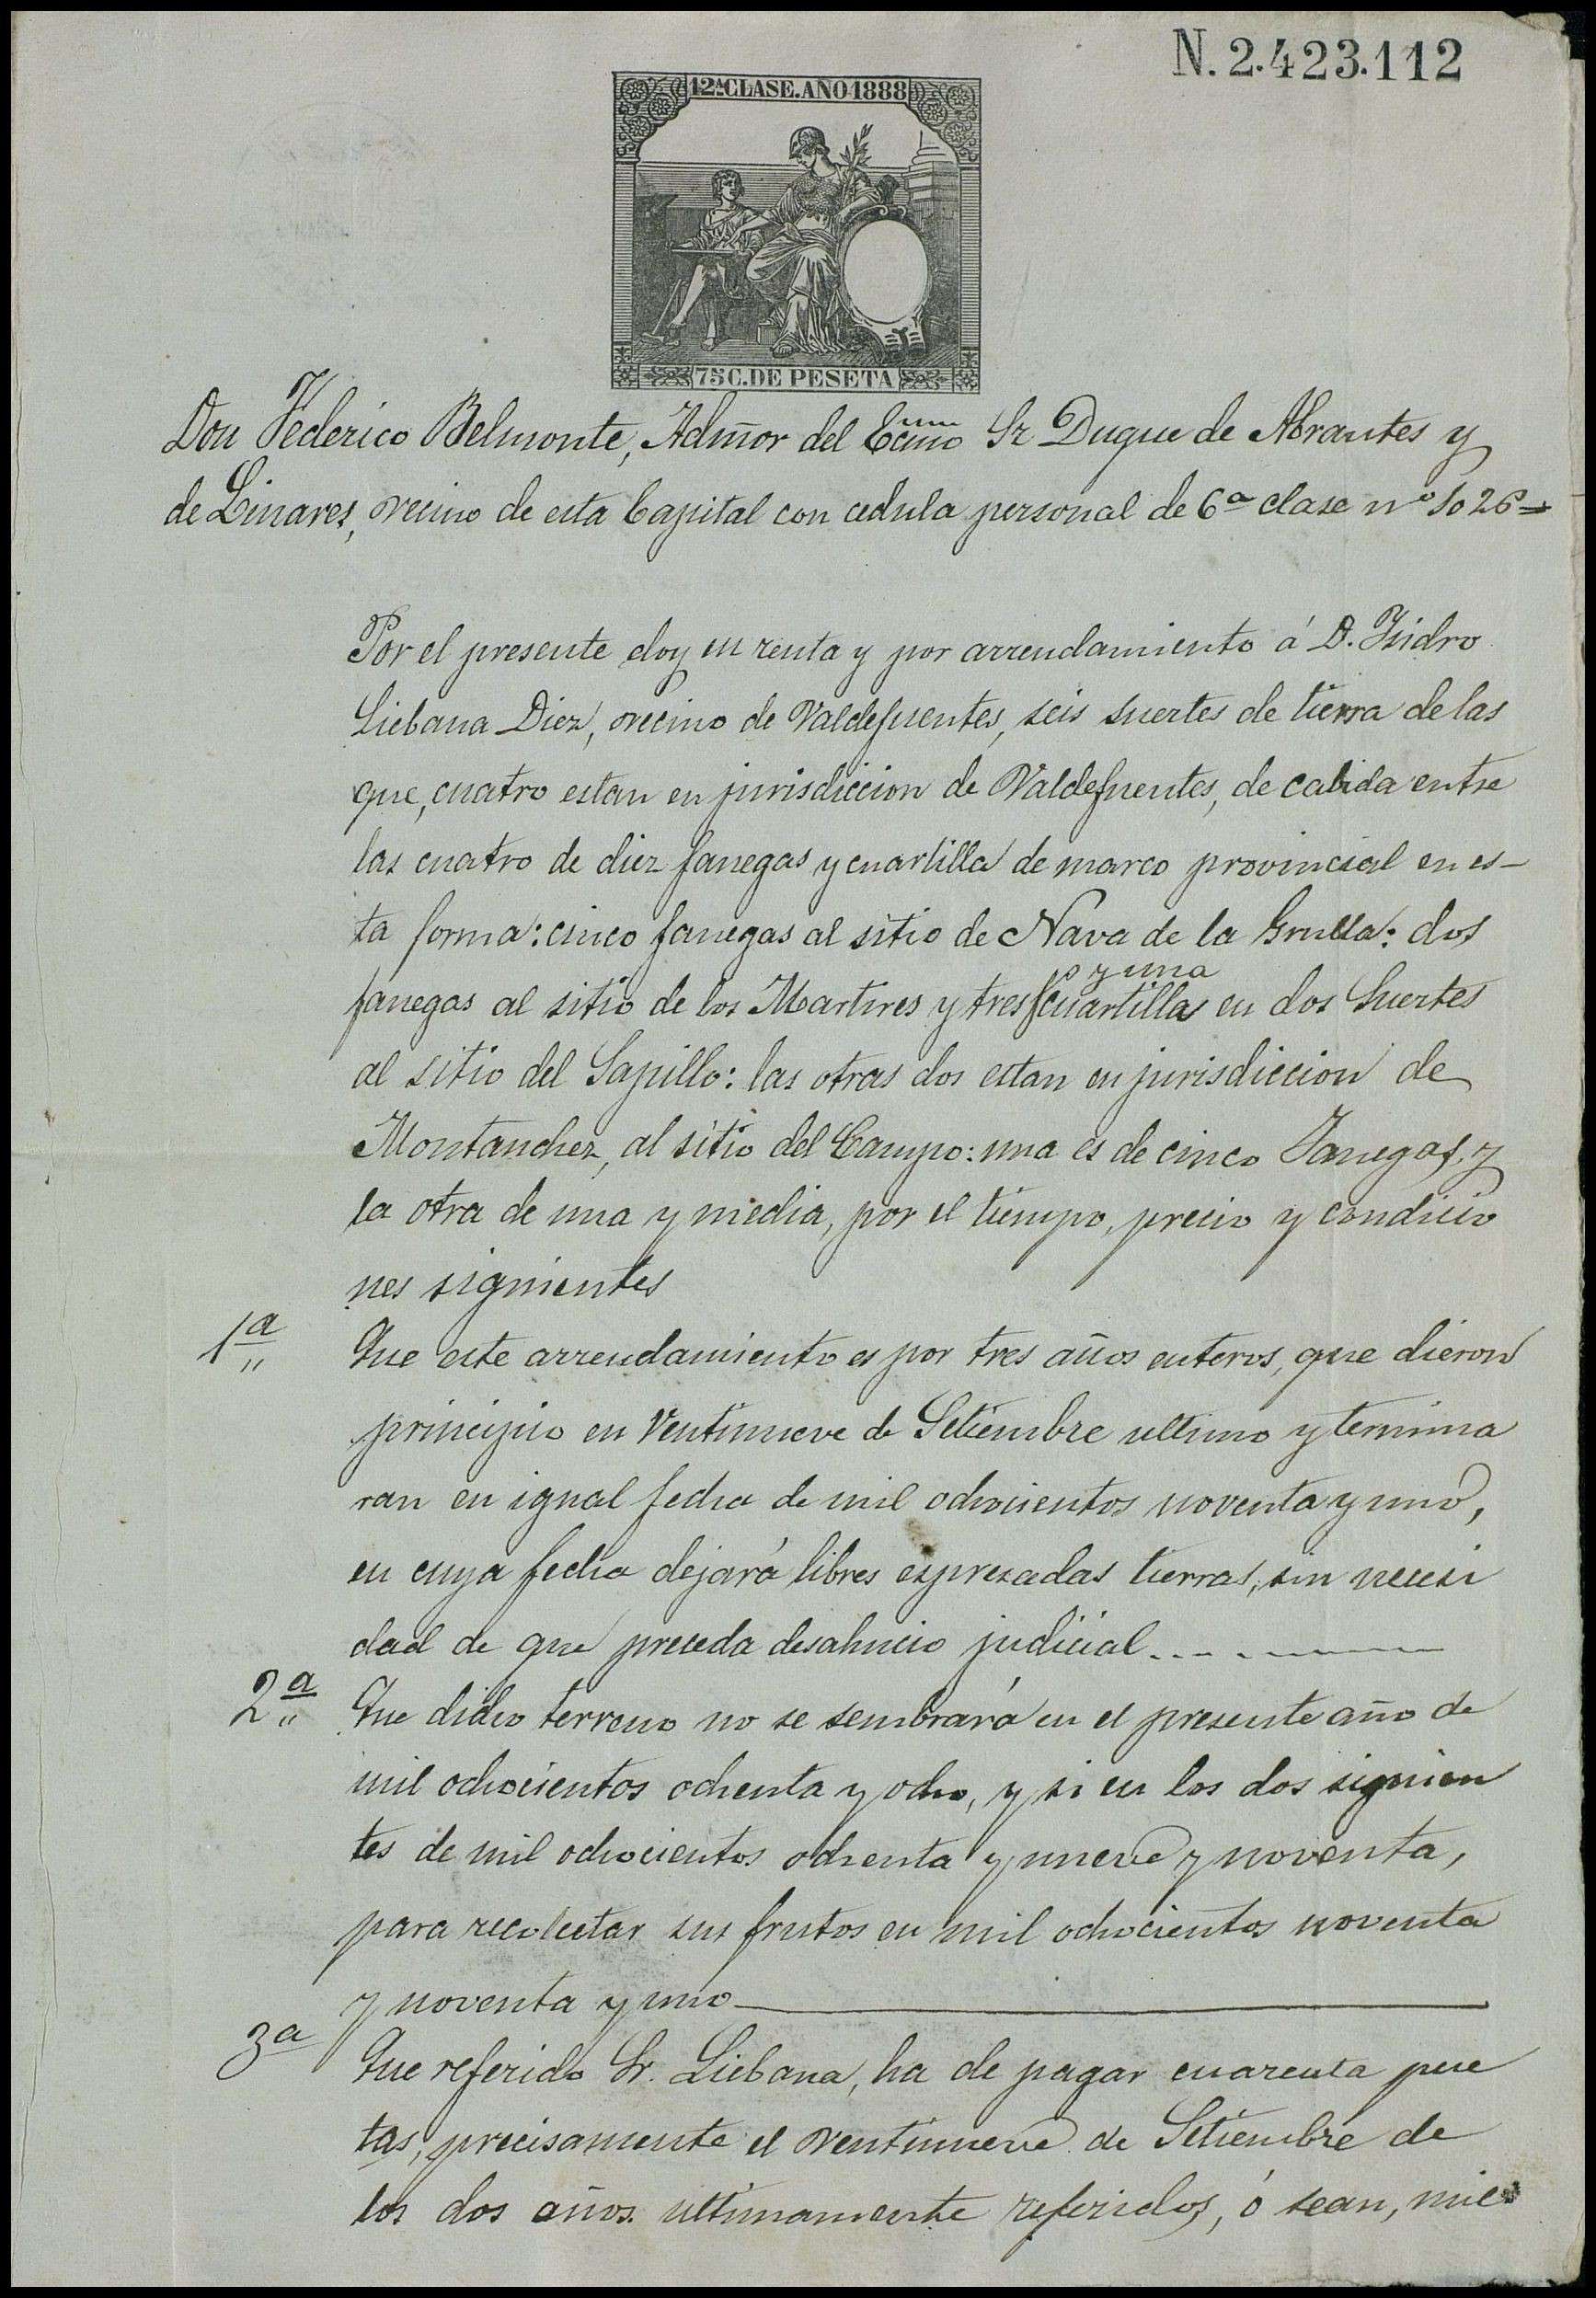 N. 2.423.112
12ª CLASE. AÑO 1888
75 C. DE PESETA
Don Federico Belmonte, Admñor del Ecmo Sr Duque de Abrantes y
de Linares, vecino de esta Capital con cedula personal de 6ª clase nº
Por el presente doy en renta y por arrendamiento á D. Ysidro
Liebana Diez, vecino de Valdefuentes, seis suertes de tierra de las
que, cuatro estan en jurisdiccion de Valdefuentes, de cabida entre
las cuatro de diez fanegas y cuartilla de marco provincial en es-
ta forma: cinco fanegas al sitio de Nava de la Grulla: dos
y una
fanegas al sitio de los Martires y tres cuartillas en dos Suertes
al sitio del Sapillo: las otras dos estan en jurisdiccion de
Montanchez, al sitio del Campo: una es de cinco Fanegas, y
la otra de una y media, por el tiempo, precio y condicio
nes siguientes
1ª
Que este arrendamiento es por tres años enteros, que dieron
principio en Ventinueve de Setiembre ultimo y termina
ran en igual fecha de mil ochocientos noventa y uno,
en cuya fecha dejará libres espresadas tierras, sin necesi
dad de que preceda desahucio judicial
2ª
Que dicho terreno no se sembrará en el presente año de
mil ochocientos ochenta y ocho, y si en los dos siguien
tes de mil ochocientos ochenta y nueve y noventa,
para recolectar sus frutos en mil ochocientos noventa
y noventa y uno
3ª
Que referido Sr. Liebana, ha de pagar cuarenta pese
tas, precisamente el ventinueve de Setiembre de
los dos años ultimamente referidos, ó sean, mil